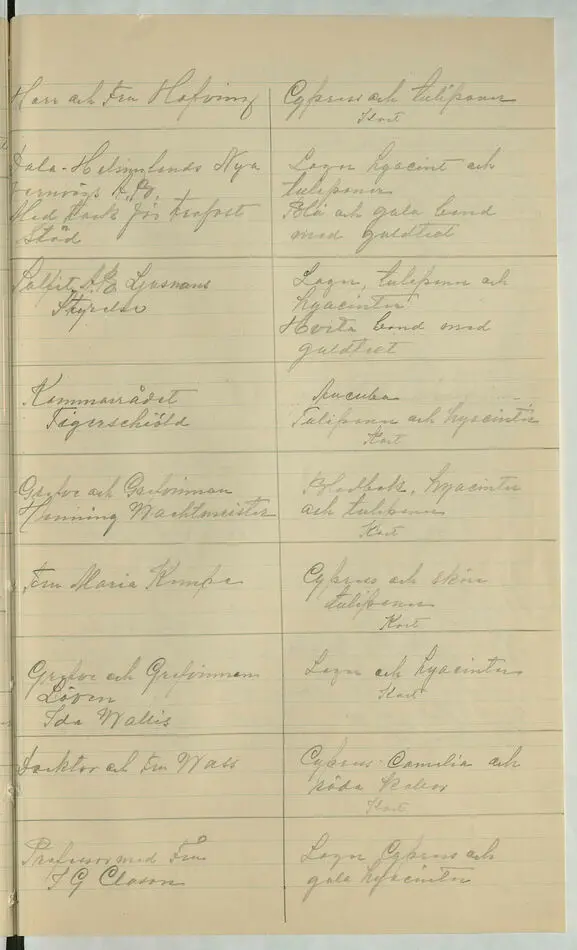 Herr och Fru Hofving
Cypress och tulpaner
Kort
Dala-Helsinglands Nya
Jernvägs A.B.
Med tack för trofast
Stöd
Lager hyacint och
tulpaner
Blå och gula band
med guldtext
A.B. Ljusnans
Styrelse
Lager, tulpaner och
hyacinter
Hvita band med
guldtext
Kammarrådet
Tigerschiöld
Aucuba
Tulipaner och hyacinter
Kort
Grefve och Grefvinnan
Henning Wachtmeister
Blodbok, hyacinter
och tulpaner
Kort
Fru Maria Kempe
Cypress och sköra
tulipaner
Kort
Grefve och Grefvinnan
Löven
Ida Wallis
Lager och hyacinter
Kort
Doktor och Fru Wass
Cypress Camelia och
röda
Kort
Professor med Fru
S G Clason
Lager Cypress och
gula hyacinter